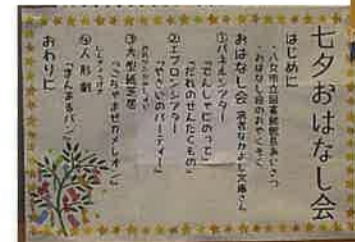 七夕おはなし会
はじめに
・八女市立図書館館長あいさつ
・おはなし会のおやくそく
おはなし会 演者なかよし文庫さん
①パネルシアター
「でんしゃにのって」
「だれのせんたくもの」
②エプロンシアター
「やさいのパーティー」
③大型紙芝居
「ごちゃまぜカメレオン」
④人形劇
「まんまるパン」
おわりに